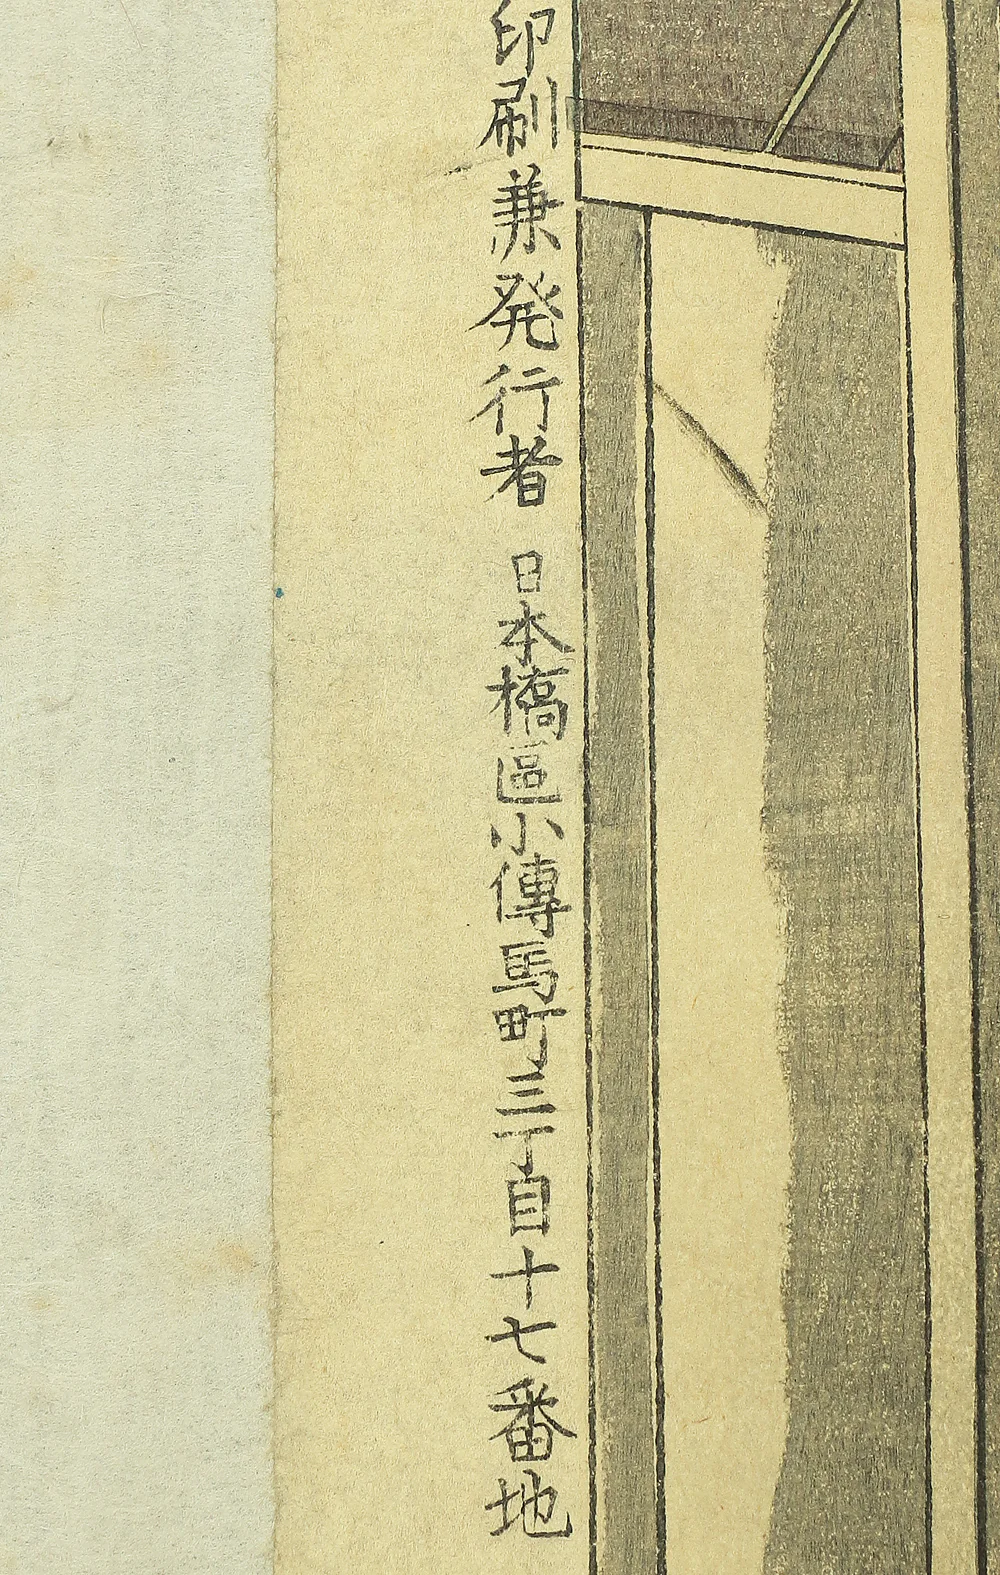 印刷兼発行者 日本橋區小傳馬町三丁目十七番地